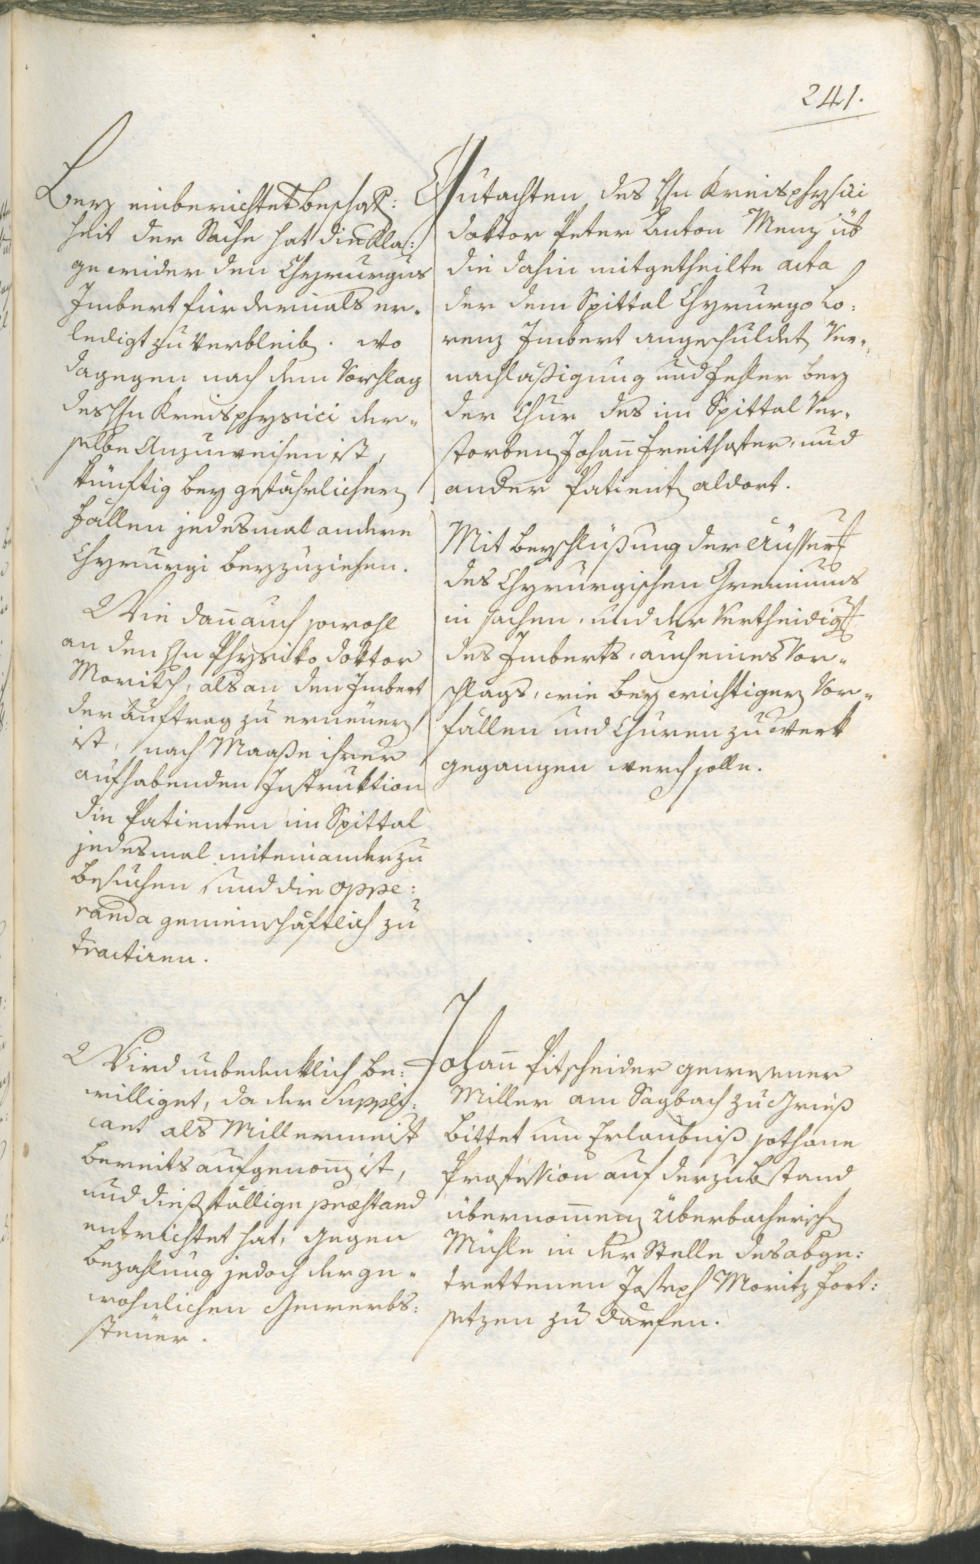 241.
Bey einberichtet beschaf:
heit der Sache hat die Kla:
ge wider den Chyrurgus
Imbert für dermals er-
ledigt zu verbleib. wo
dagegen nach dem Vorschlag
des Hn Kreisphysici der-
selbe anzuweisen ist,
künftig bey gefährlichen
Fällen jedesmal andere
Chyrurgi beyzuziehen.
Wie dañ auch sowohl
an den Hn Physiko doktor
Moritsch, als an den Imbert
der Auftrag zu erneuern
ist, nach Maaße ihrer
aufhabenden Instruktion
die Patienten im Spittal
jedesmal miteinander zu
besuchen und die oppe:
randa gemeinschäftlich zu
tractiren.
Gutachten des Hn Kreisphysici
doktor Peter Anton Menz üb
die dahin mitgetheilte acta
der dem Spittal Chyrurgo Lo:
renz Imbert angeschuldet Ver-
nachläßigung und Fehler bey
der Chur des im Spittal Ver-
storben Johañ Freithofer und
ander Patient aldort.
Mit beyschlüßung der Äusser
des Chyrurgischen Gremiums
in sachen, und der Vertheidig
des Imberts, auch eines Vor-
schlags, wie bey wichtigen Vor-
fällen und Churen zu werk
gegangen werd solle.
Wird unbedenklich be:
williget, da der Suppli:
cant als Millermeist
bereits aufgenom̃ ist,
und dießfällige præstand
entrichtet hat, gegen
bezahlung jedoch der ge-
wohnlichen Gewerbs:
steuer.
Johañ Pitscheider gewesener
Miller am Sagbach zu Grieß
bittet um Erlaubniß sothane
Profession auf der zu bstand
übernom̃en Überbacherisch
Mühle in der Stelle des abge:
trettenen Joseph Moritz fort:
setzen zu därfen.